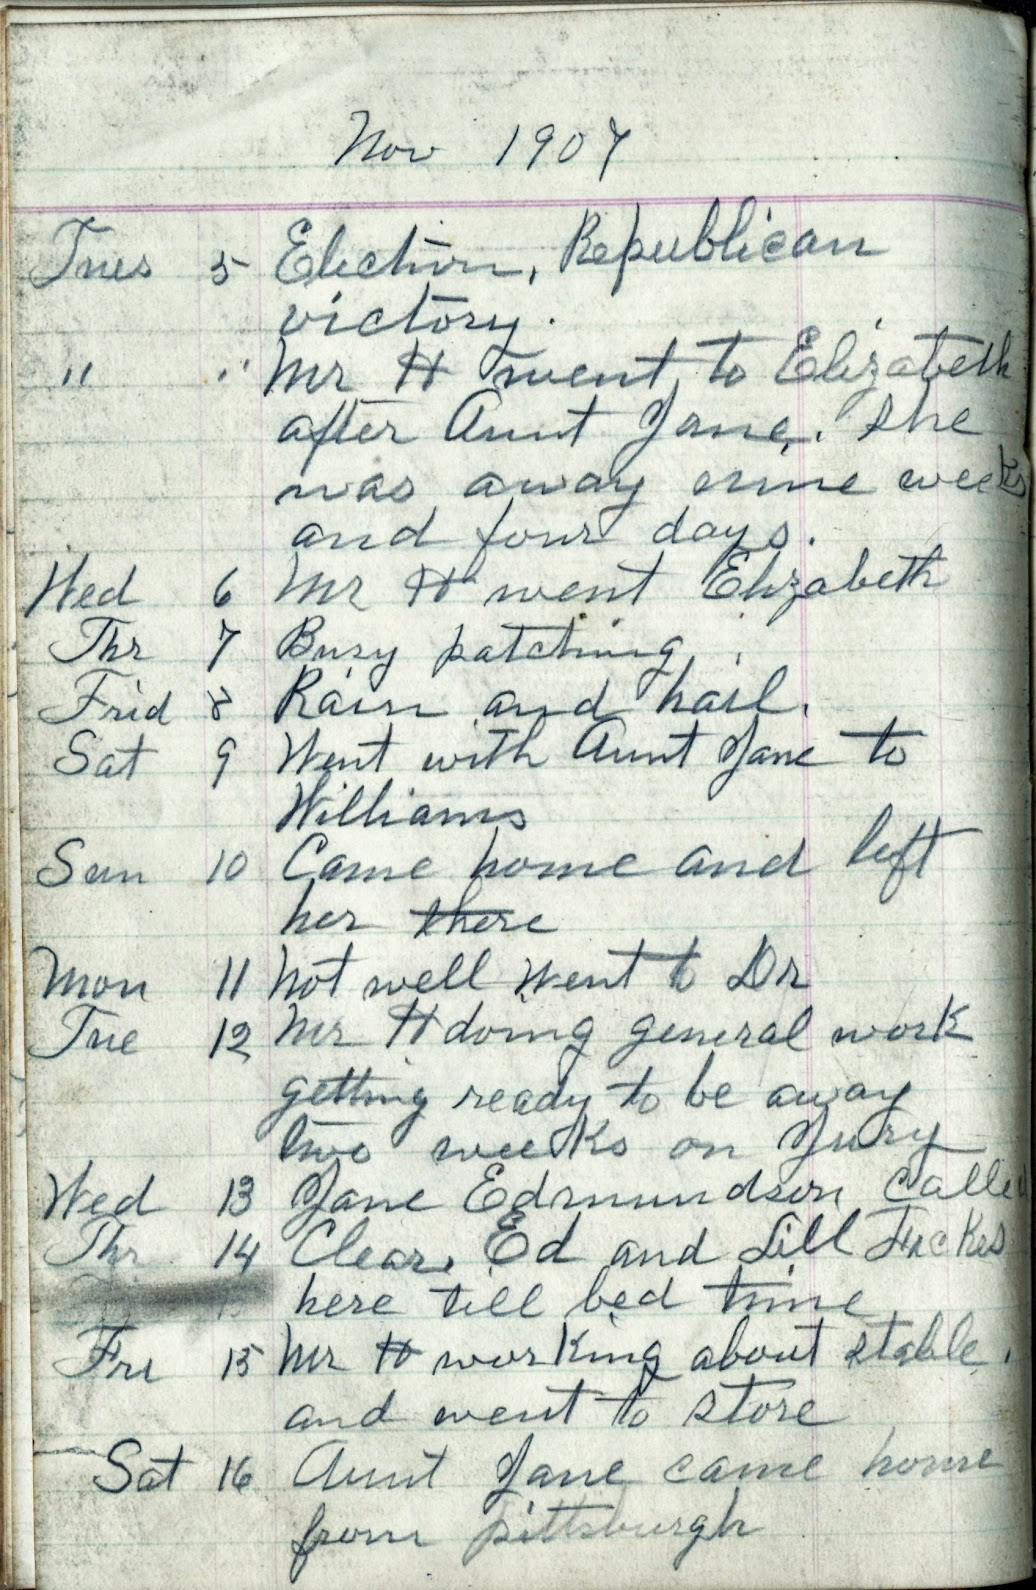 Nov 1907
Tues 5 Election, Republican
victory.
" " Mr H went to Elizabeth
after Aunt Jane. She
was away nine weeks
and four days.
Wed 6 Mr H went Elizabeth
Thr 7 Busy patching.
Frid 8 Rain and hail.
Sat 9 Went with Aunt Jane to
Williams
Sun 10 Came home and left
her there
Mon 11 Not well went to Dr
Tue 12 Mr H doing general work
getting ready to be away
two weeks on Jury
Wed 13 Jane Edmundson Called
Thr 14 Clear, Ed and Lill
here till bed time
Fri 15 Mr H working about stable.
and went to store
Sat 16 Aunt Jane came home
from pittsburgh